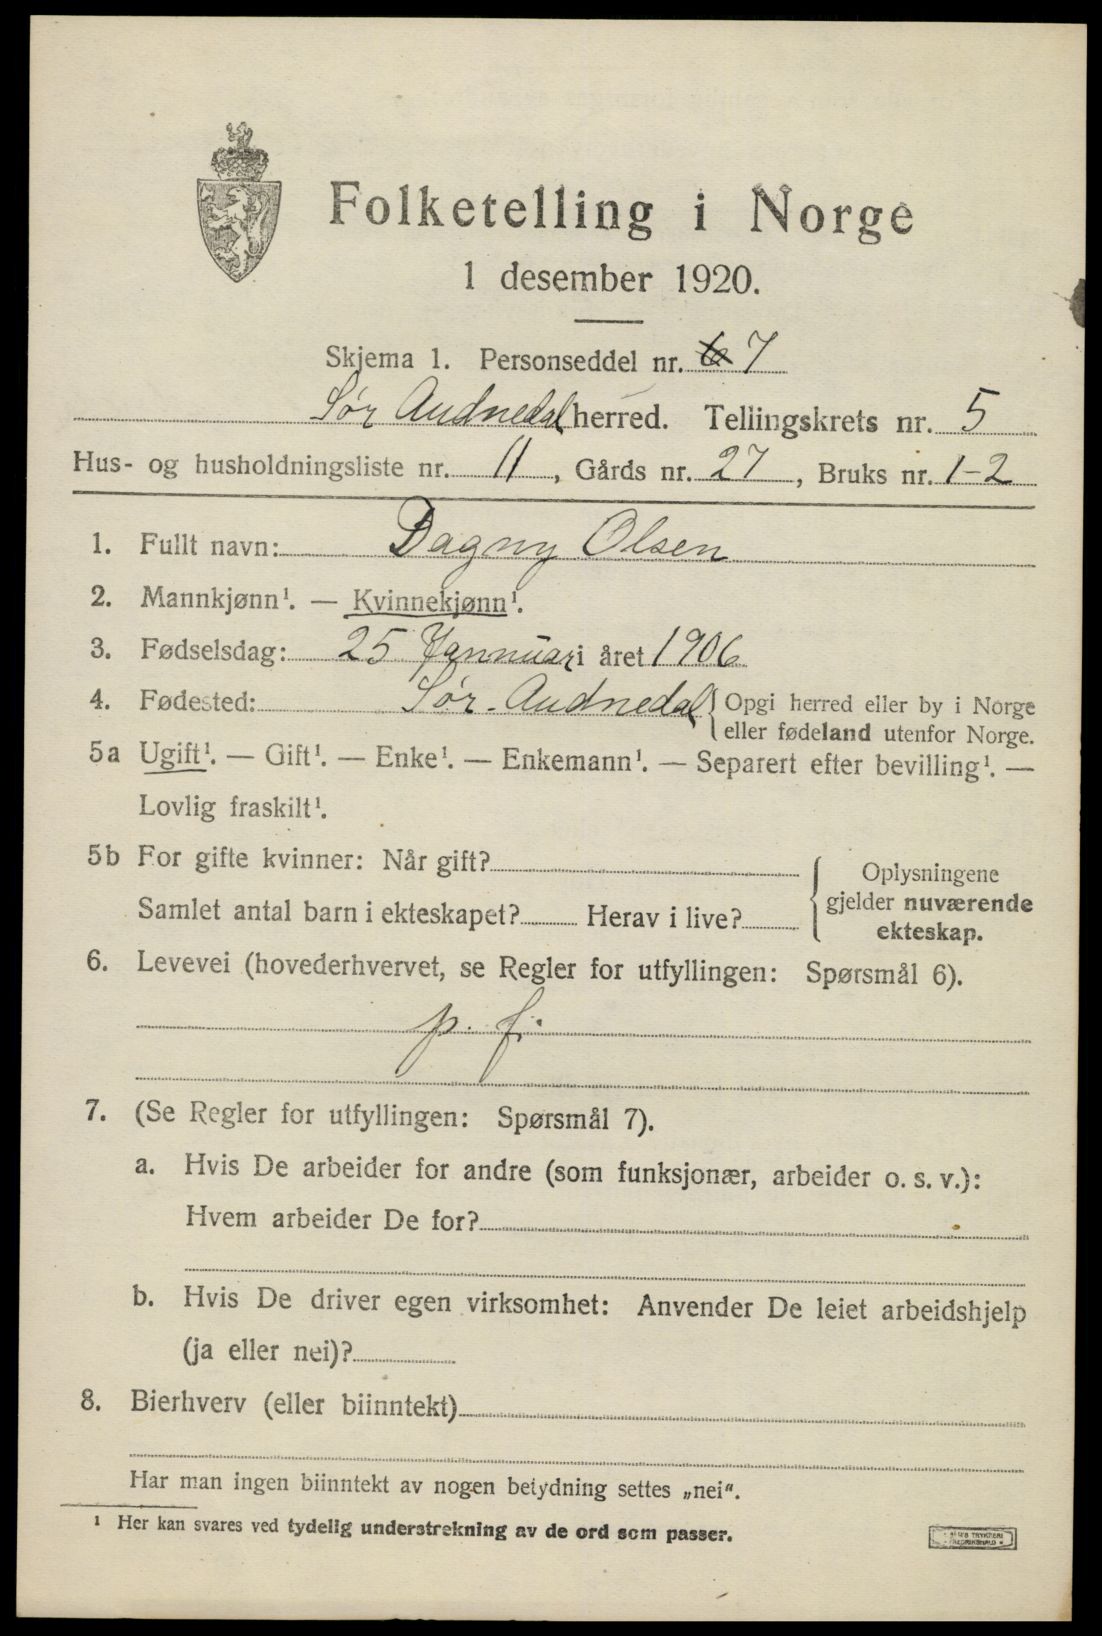 Folketelling i Norge
1 desember 1920.
Skjema 1. Personseddel nr. 6 7
Sør Audnedal herred. Tellingskrets nr. 5
Hus- og husholdningsliste nr. 11, Gårds nr. 27, Bruks nr. 1-2
1. Fullt navn: Dagny Olsen
2. Mannkjønn¹. — Kvinnekjønn¹.
3. Fødselsdag: 25 Jannuar i året 1906
4. Fødested: Sør-Audnedal { Opgi herred eller by i Norge
eller fødeland utenfor Norge.
5a Ugift¹. — Gift¹. — Enke¹. — Enkemann¹. — Separert efter bevilling¹. —
Lovlig fraskilt¹.
5b For gifte kvinner: Når gift?
Samlet antal barn i ekteskapet? Herav i live?
{ Oplysningene
gjelder nuværende
ekteskap.
6. Levevei (hovederhvervet, se Regler for utfyllingen: Spørsmål 6).
p. f.
7. (Se Regler for utfyllingen: Spørsmål 7).
a. Hvis De arbeider for andre (som funksjonær, arbeider o. s. v.):
Hvem arbeider De for?
b. Hvis De driver egen virksomhet: Anvender De leiet arbeidshjelp
(ja eller nei)?
8. Bierhverv (eller biinntekt)
Har man ingen biinntekt av nogen betydning settes „nei".
¹ Her kan svares ved tydelig understrekning av de ord som passer.
TRYKKERI
FREDRIKSHALD